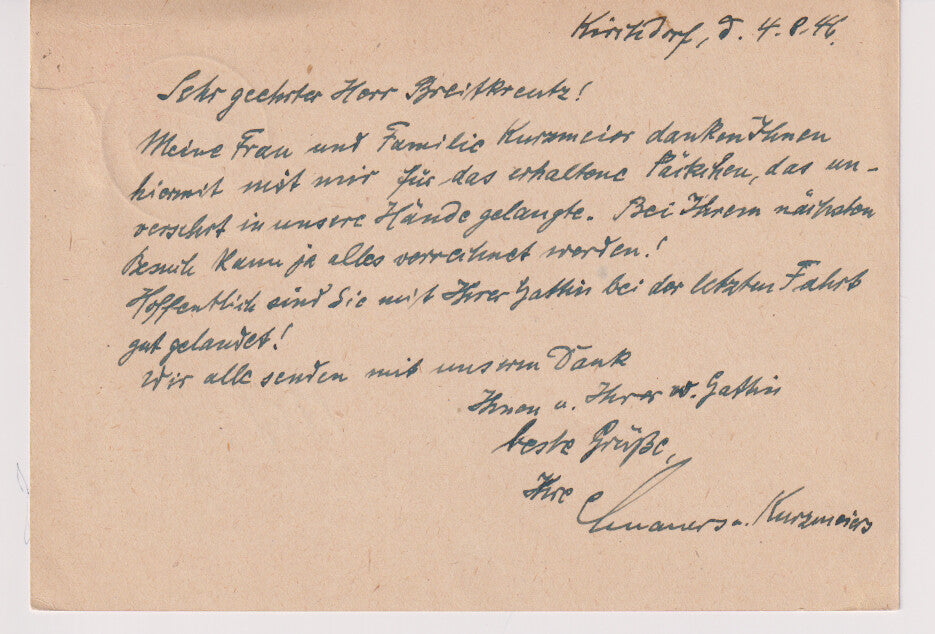 Kirchdorf, d. 4.8.46.
Sehr geehrter Herr Breitkreutz!
Meine Frau und Familie Kurzmeier danken Ihnen
hiermit mit mir für das erhaltene Päckchen, das un-
versehrt in unsere Hände gelangte. Bei Ihrem nächsten
Besuch kann ja alles verrechnet werden!
Hoffentlich sind Sie mit Ihrer Gattin bei der letzten Fahrt
gut gelandet!
Wir alle senden mit unserm Dank
Ihnen u. Ihrer w. Gattin
beste Grüße,
Ihre
u. Kurzmeiers